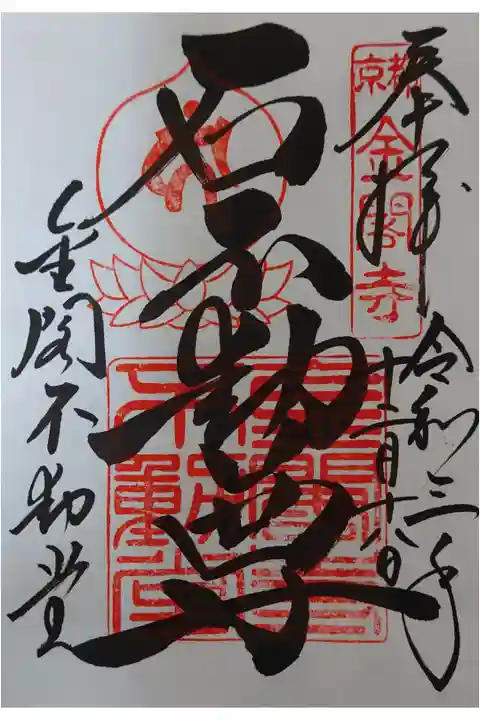 奉拝
令和三年
十二月十八日
京都
金閣寺
石不動尊
金閣不動堂